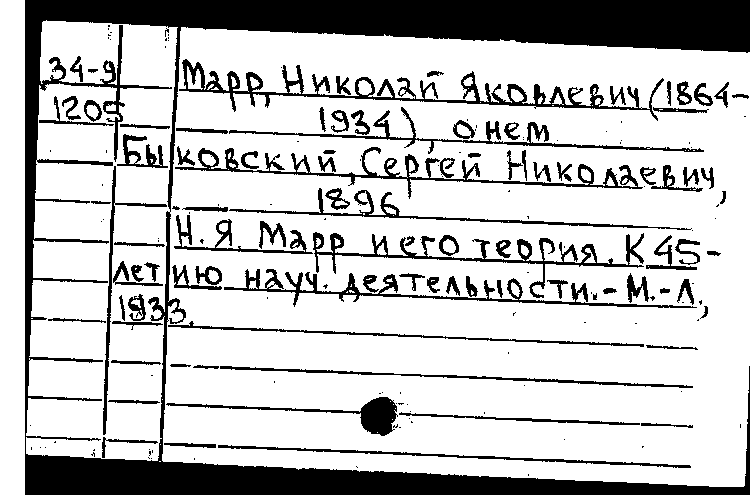 34-9 Марр, Николай Яковлевич (1864-
1205 1934), о нем
Быковский, Сергей Николаевич,
1896
Н. Я. Марр и его теория. К 45-
летию науч. деятельности. - М.-Л.,
1933.